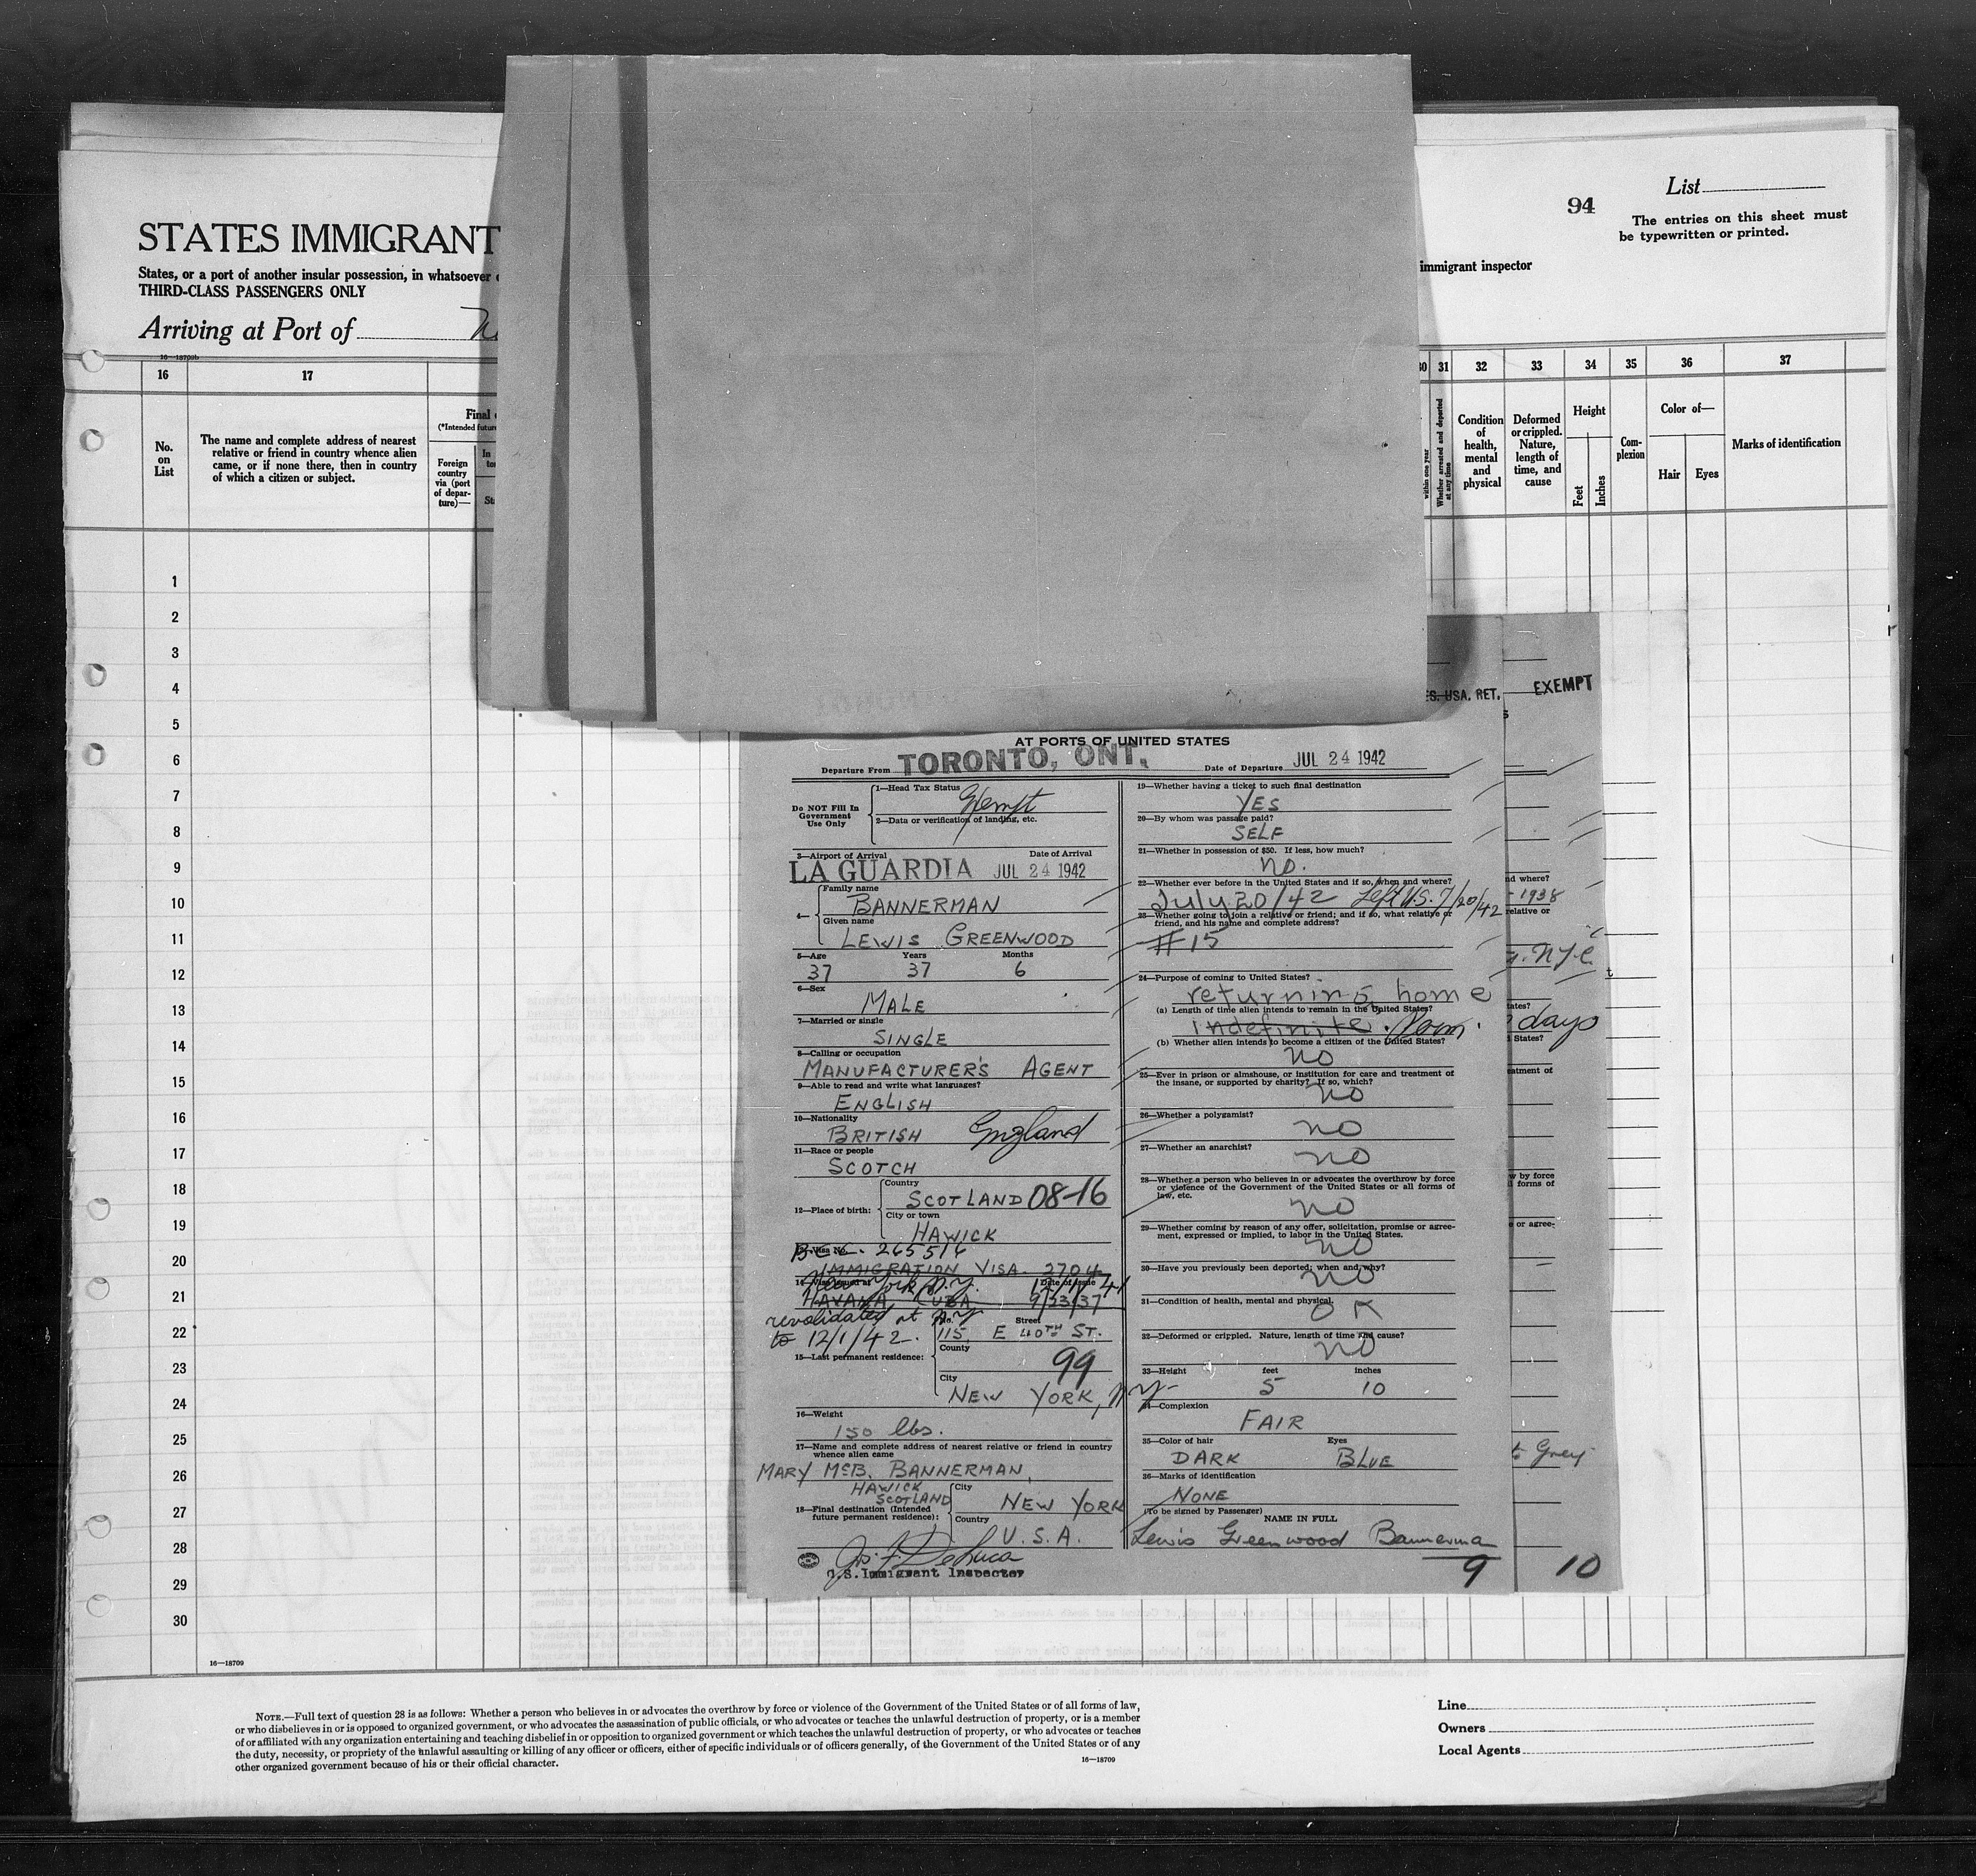 List
94
The entries on this sheet must
be typewritten or printed.
STATES IMMIGRANT
immigrant inspector
States, or a port of another insular possession, in whatsoever
THIRD-CLASS PASSENGERS ONLY
Arriving at Port of
16—18709b
16 17 30 31 32 33 34 35 36 37
No.
on
List
The name and complete address of nearest
relative or friend in country whence alien
came, or if none there, then in country
of which a citizen or subject.
Final
(*Intended future
Foreign
country
via (port
of depar-
ture)—
within one year
Whether arrested and deported
at any time
Condition
of
health,
mental
and
physical
Deformed
or crippled.
Nature,
length of
time, and
cause
Height
Feet
Inches
Com-
plexion
Color of—
Hair
Eyes
Marks of identification
1
2
3
4
5
6
7
8
9
10
11
12
13
14
15
16
17
18
19
20
21
22
23
24
25
26
27
28
29
30
16—18709
USA. RET.
EXEMPT
AT PORTS OF UNITED STATES
Departure From TORONTO, ONT. Date of Departure JUL 24 1942
Do NOT Fill In
Government
Use Only
1—Head Tax Status Exempt
2—Data or verification of landing, etc.
3—Airport of Arrival Date of Arrival
LA GUARDIA JUL 24 1942
4—
Family name
BANNERMAN
Given name
LEWIS GREENWOOD
5—Age Years Months
37 37 6
6—Sex
MALE
7—Married or single
SINGLE
8—Calling or occupation
MANUFACTURER'S AGENT
9—Able to read and write what languages?
ENGLISH
10—Nationality
BRITISH England
11—Race or people
SCOTCH
12—Place of birth:
Country
SCOTLAND 08-16
City or town
HAWICK
13—Visa No. 265516
IMMIGRATION VISA. 2704
14—Visa issued at Date of issue
New York N.Y. 12/1/41
HAVANA CUBA 9/23/37
revalidated at N.Y.
to 12/1/42.
15—Last permanent residence:
No. Street
115 E 40TH ST.
County
99
City
NEW YORK, N.Y.
16—Weight
150 lbs.
17—Name and complete address of nearest relative or friend in country
whence alien came
MARY McB. BANNERMAN,
HAWICK
SCOTLAND
18—Final destination (Intended
future permanent residence):
City
NEW YORK
Country
U.S.A.
Jos. F. DeLuca
U.S. Immigrant Inspector
19—Whether having a ticket to such final destination
YES
20—By whom was passage paid?
SELF
21—Whether in possession of $50. If less, how much?
no.
22—Whether ever before in the United States and if so, when and where?
July 20/42 Left U.S. 7/20/42
23—Whether going to join a relative or friend; and if so, what relative or
friend, and his name and complete address?
#15
24—Purpose of coming to United States?
returning home
(a) Length of time alien intends to remain in the United States?
indefinite. Perm.
(b) Whether alien intends to become a citizen of the United States?
no
25—Ever in prison or almshouse, or institution for care and treatment of
the insane, or supported by charity? If so, which?
no
26—Whether a polygamist?
no
27—Whether an anarchist?
no
28—Whether a person who believes in or advocates the overthrow by force
or violence of the Government of the United States or all forms of
law, etc.
no
29—Whether coming by reason of any offer, solicitation, promise or agree-
ment, expressed or implied, to labor in the United States.
no
30—Have you previously been deported; when and why?
no
31—Condition of health, mental and physical.
OK
32—Deformed or crippled. Nature, length of time and cause?
no
33—Height feet inches
5 10
34—Complexion
FAIR
35—Color of hair Eyes
DARK BLUE
36—Marks of identification
NONE
(To be signed by Passenger)
NAME IN FULL
Lewis Greenwood Bannerman
9
nd where?
1938
relative or
N.Y.C.
tates?
days
States?
atment of
w by force
forms of
e or agree-
Grey
10
NOTE.—Full text of question 28 is as follows: Whether a person who believes in or advocates the overthrow by force or violence of the Government of the United States or of all forms of law,
or who disbelieves in or is opposed to organized government, or who advocates the assassination of public officials, or who advocates or teaches the unlawful destruction of property, or is a member
of or affiliated with any organization entertaining and teaching disbelief in or opposition to organized government or which teaches the unlawful destruction of property, or who advocates or teaches
the duty, necessity, or propriety of the unlawful assaulting or killing of any officer or officers, either of specific individuals or of officers generally, of the Government of the United States or of any
other organized government because of his or their official character.
16—18709
Line
Owners
Local Agents